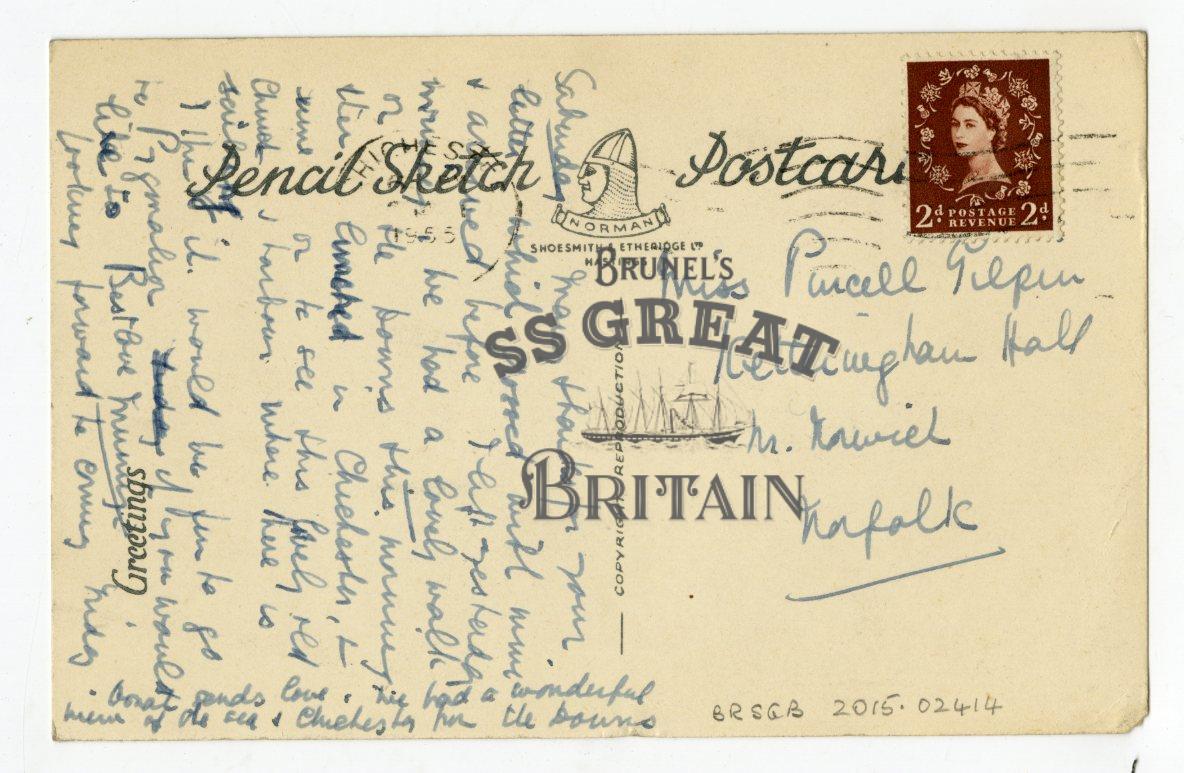 Pencil Sketch Postcard
CHICHESTER
1955
NORMAN
SHOESMITH & ETHERIDGE LTD
HASTINGS
2d POSTAGE REVENUE 2d
BRUNEL'S
SS GREAT
BRITAIN
COPYRIGHT REPRODUCTION
Greetings
Miss Purcell Gilpin
Ketteringham Hall
Nr. Norwich
Norfolk
Saturday Many thanks for your
letter which crossed with mine
& arrived before I left yesterday
morning we had a lovely walk
on the Downs this morning
then lunched in Chichester, &
came on to see this lovely old
Church & harbour where there is
sailing
I think it would be fun to go
to Pygmalion if you would
like to Best love
looking forward to coming Friday
sends love. We had a wonderful
view of the sea & Chichester from the Downs
BRSGB 2015.02414